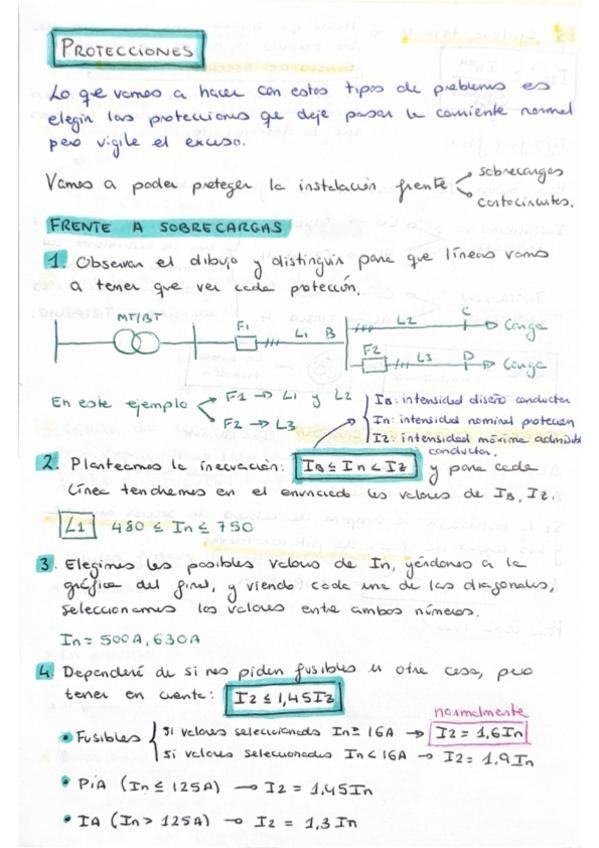 PROTECCIONES
Lo que vamos a hacer con estos tipos de problemas es
elegir las protecciones que deje pasar la corriente normal
pero vigile el exceso.
Vamos a poder proteger la instalación frente
sobrecargas
cortocircuitos.
FRENTE A SOBRECARGAS
1. Observar el dibujo y distinguir para que líneas vamos
a tener que ver cada protección.
MT/BT F1 L1 B L2 C Carga
F2 L3 D Carga
En este ejemplo
F1 → L1 y L2
F2 → L3
IB: intensidad diseño conductor
In: intensidad nominal proteccion
Iz: intensidad máxima admisible
conductor.
2. Planteamos la inecuación: IB ≤ In ≤ Iz y para cada
línea tendremos en el enunciado los valores de IB, Iz.
L1 480 ≤ In ≤ 750
3. Elegimos los posibles valores de In, yéndonos a la
gráfica del final, y viendo cada una de las diagonales,
seleccionamos los valores entre ambos números.
In = 500A, 630A
4. Dependeré de si nos piden fusibles u otra cosa, pero
tener en cuenta: I2 ≤ 1,45Iz
normalmente
• Fusibles
si valores seleccionados In ≥ 16A → I2 = 1,6In
si valores seleccionados In < 16A → I2 = 1,9In
• PiA (In ≤ 125A) → I2 = 1,45In
• IA (In > 125A) → I2 = 1,3In